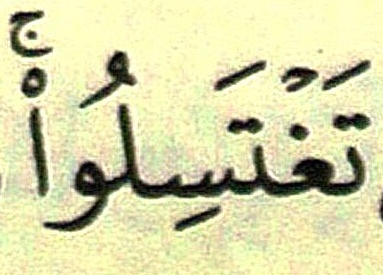 تَغْتَسِلُوا۟ ۚ